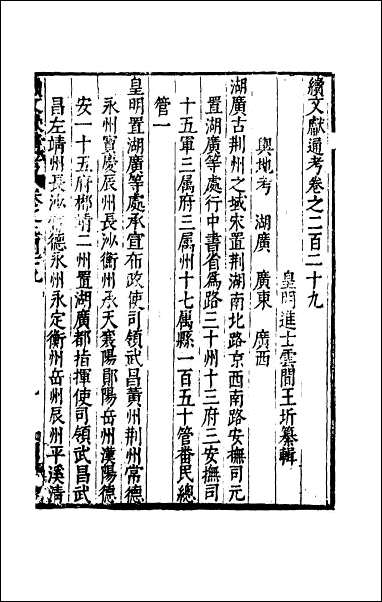 續文獻通考卷之二百二十九
皇明進士雲間王圻纂輯
輿地考　湖廣　廣東　廣西
湖廣古荆州之域宋置荆湖南北路京西南路安撫司元
置湖廣等處行中書省為路三十州十三府三安撫司
十五軍三属府三属州十七属縣一百五十管番民總
管一
皇明置湖廣等處承宣布政使司領武昌黄州荆州常德
永州寳慶辰州長沙衡州承天襄陽鄖陽岳州漢陽德
安一十五府郴靖二州置湖廣都指揮使司領武昌武
昌左靖州長沙德永州永定衡州岳州辰州平溪清